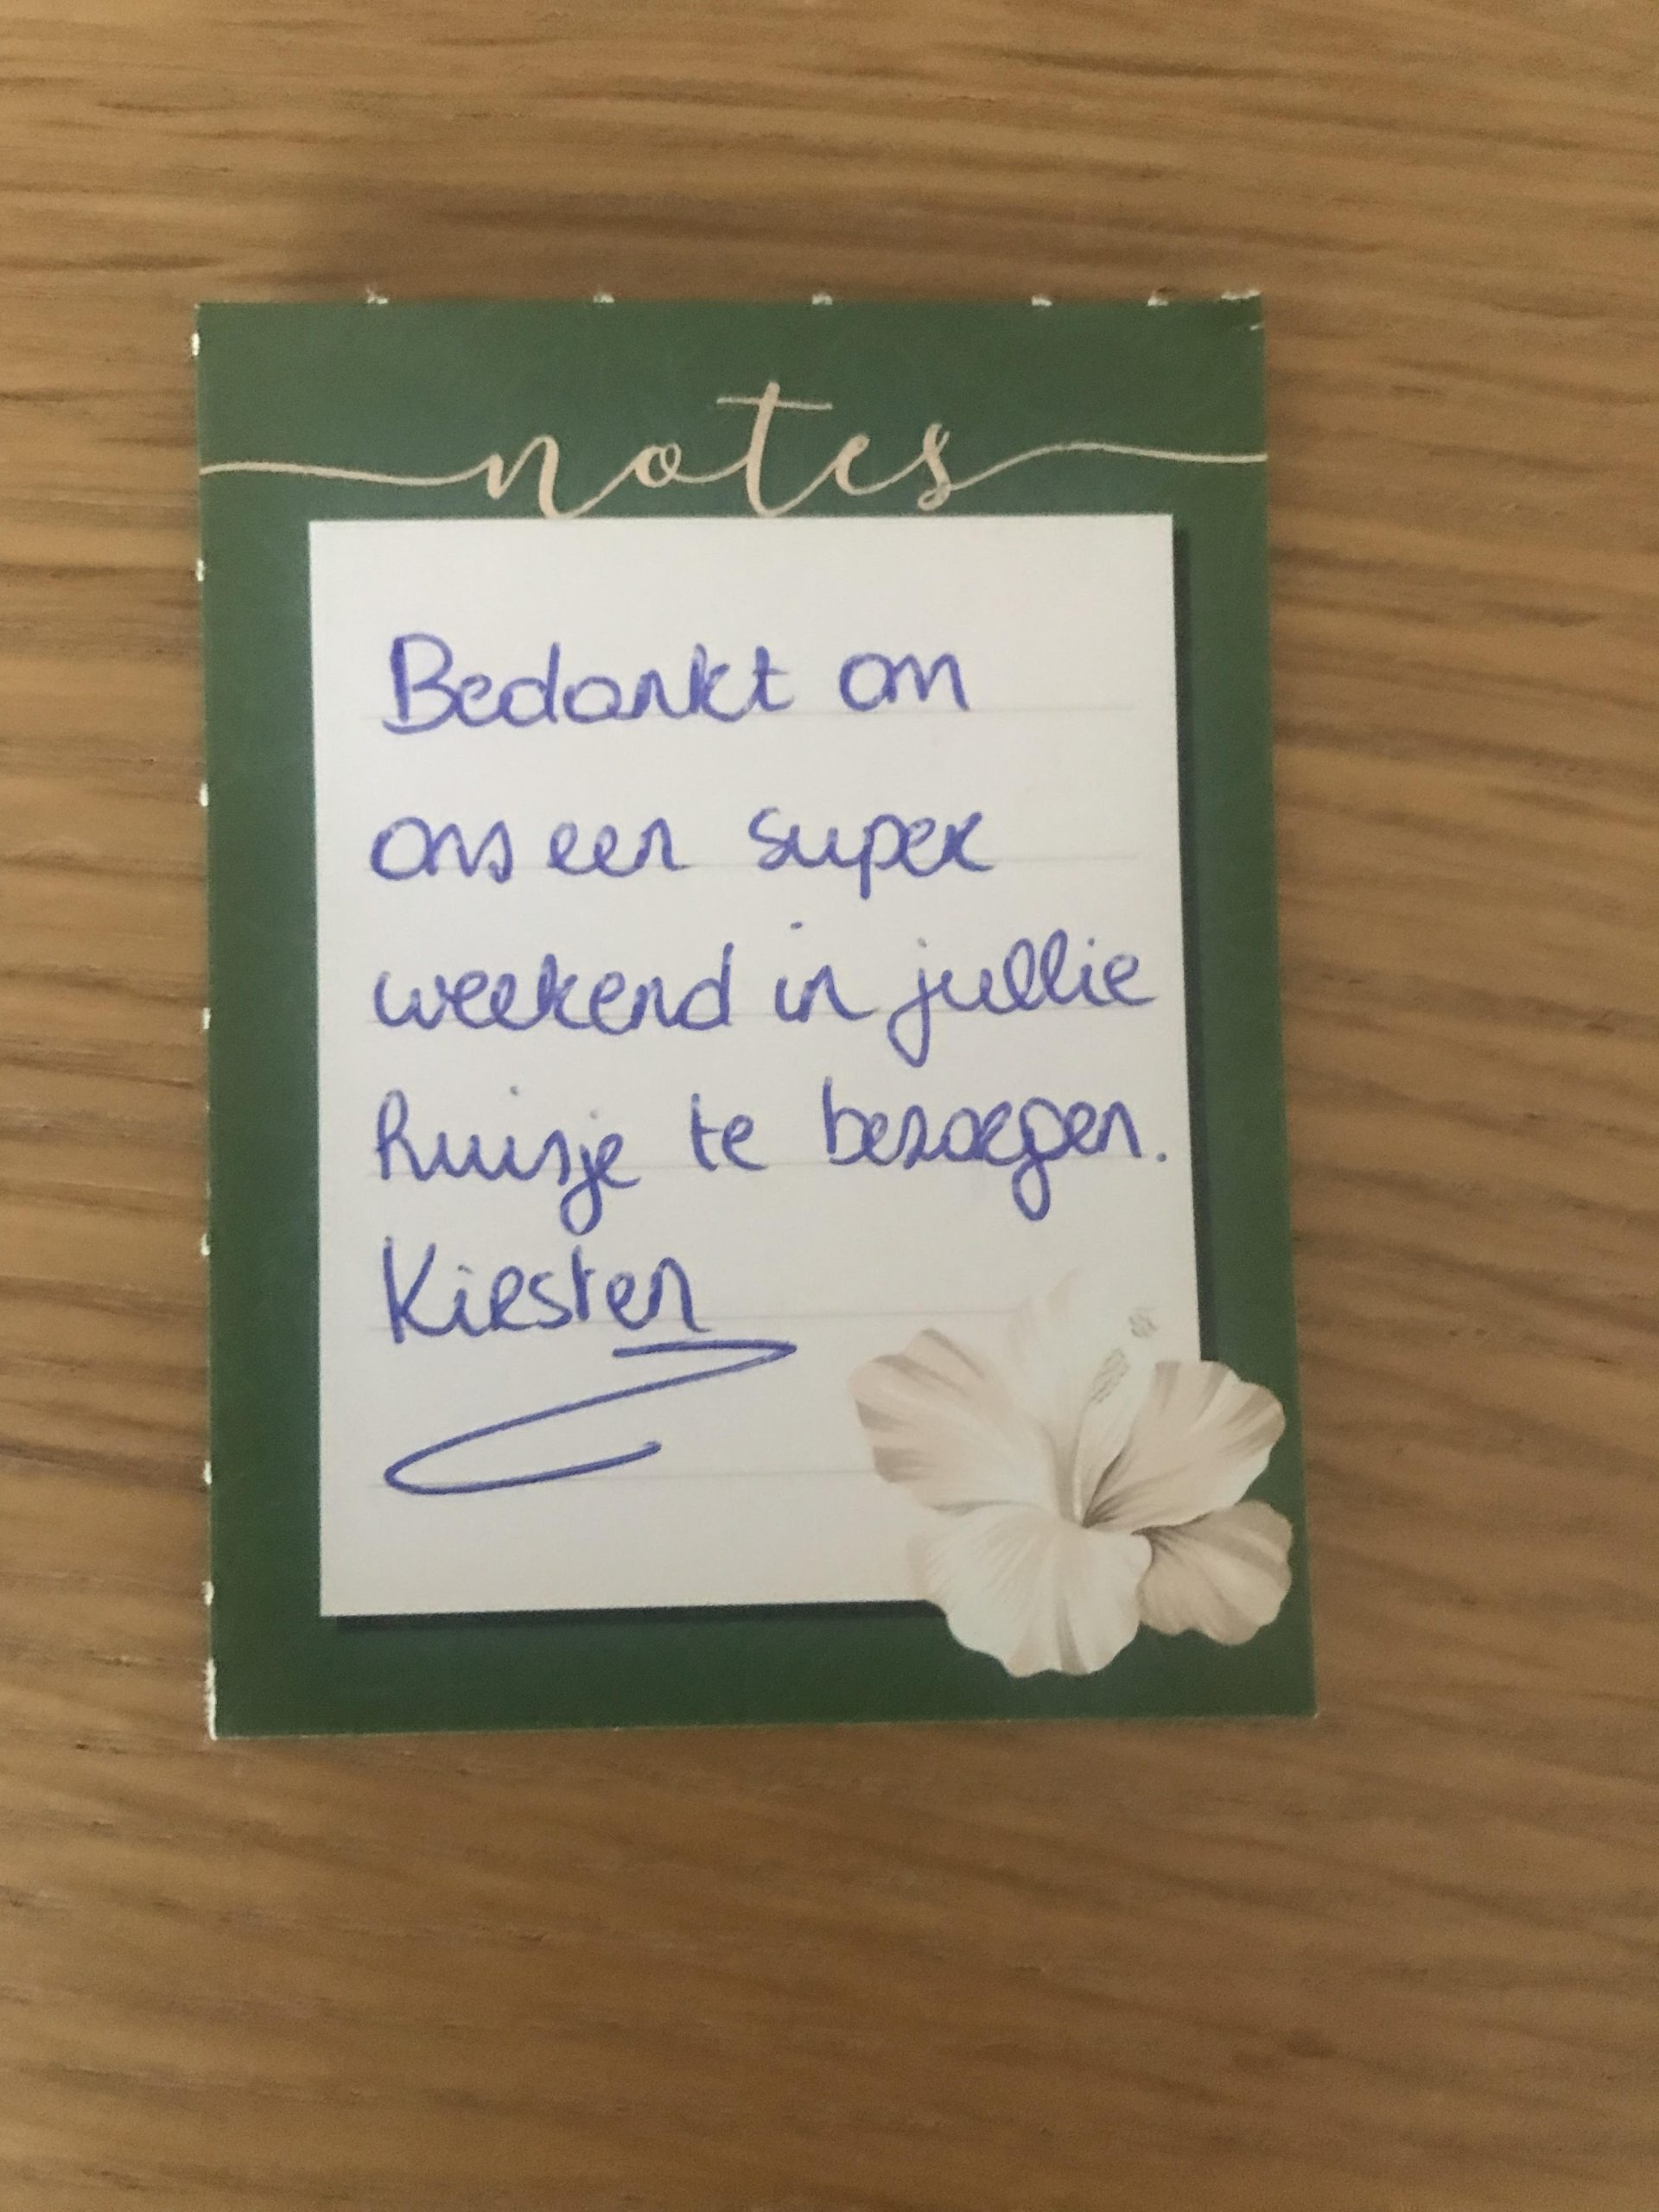 notes
Bedankt om
ons een super
weekend in jullie
huisje te bezoegen.
Kirsten